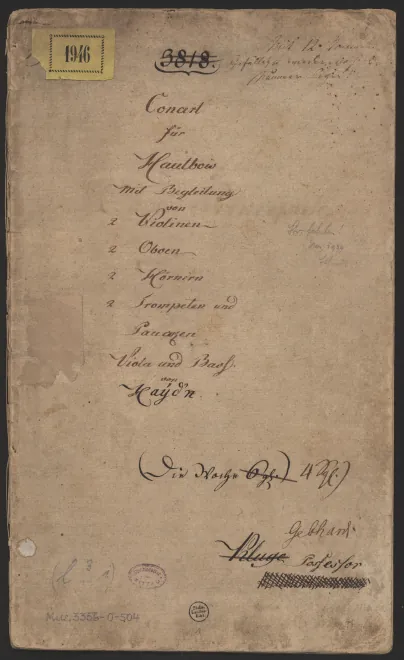 1946
3818.
Mit 12.
Concert
für
Hautbois
Mit Begleitung
von
2 Violinen
2 Oboen
2 Hörnern
2 Trompeten und
Paucken
Viola und Bass.
von
Haÿd'n.
(Die Woche 6 4
Gebhard
Kluge Possessor
(l 3 1)
Mus. 3356-O-504